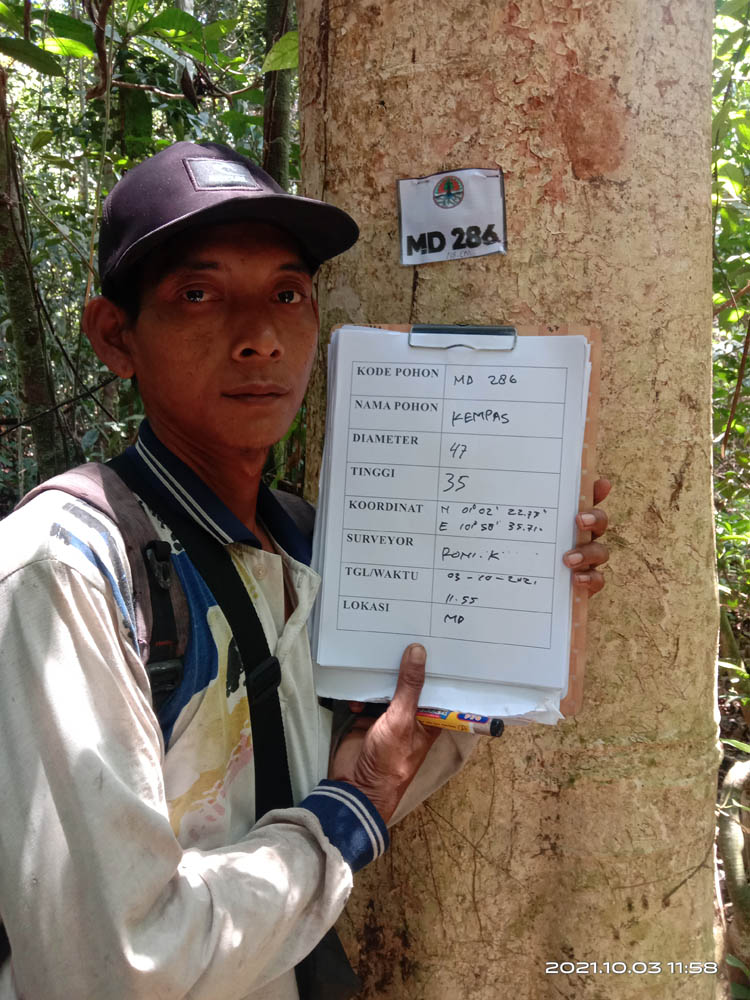 MD 286
KODE POHON MD 286
NAMA POHON KEMPAS
DIAMETER 47
TINGGI 35
KOORDINAT N 01°02' 22.78"
E 101°58' 35.71"
SURVEYOR
TGL/WAKTU 03-10-2021
11.55
LOKASI MD
2021.10.03 11:58